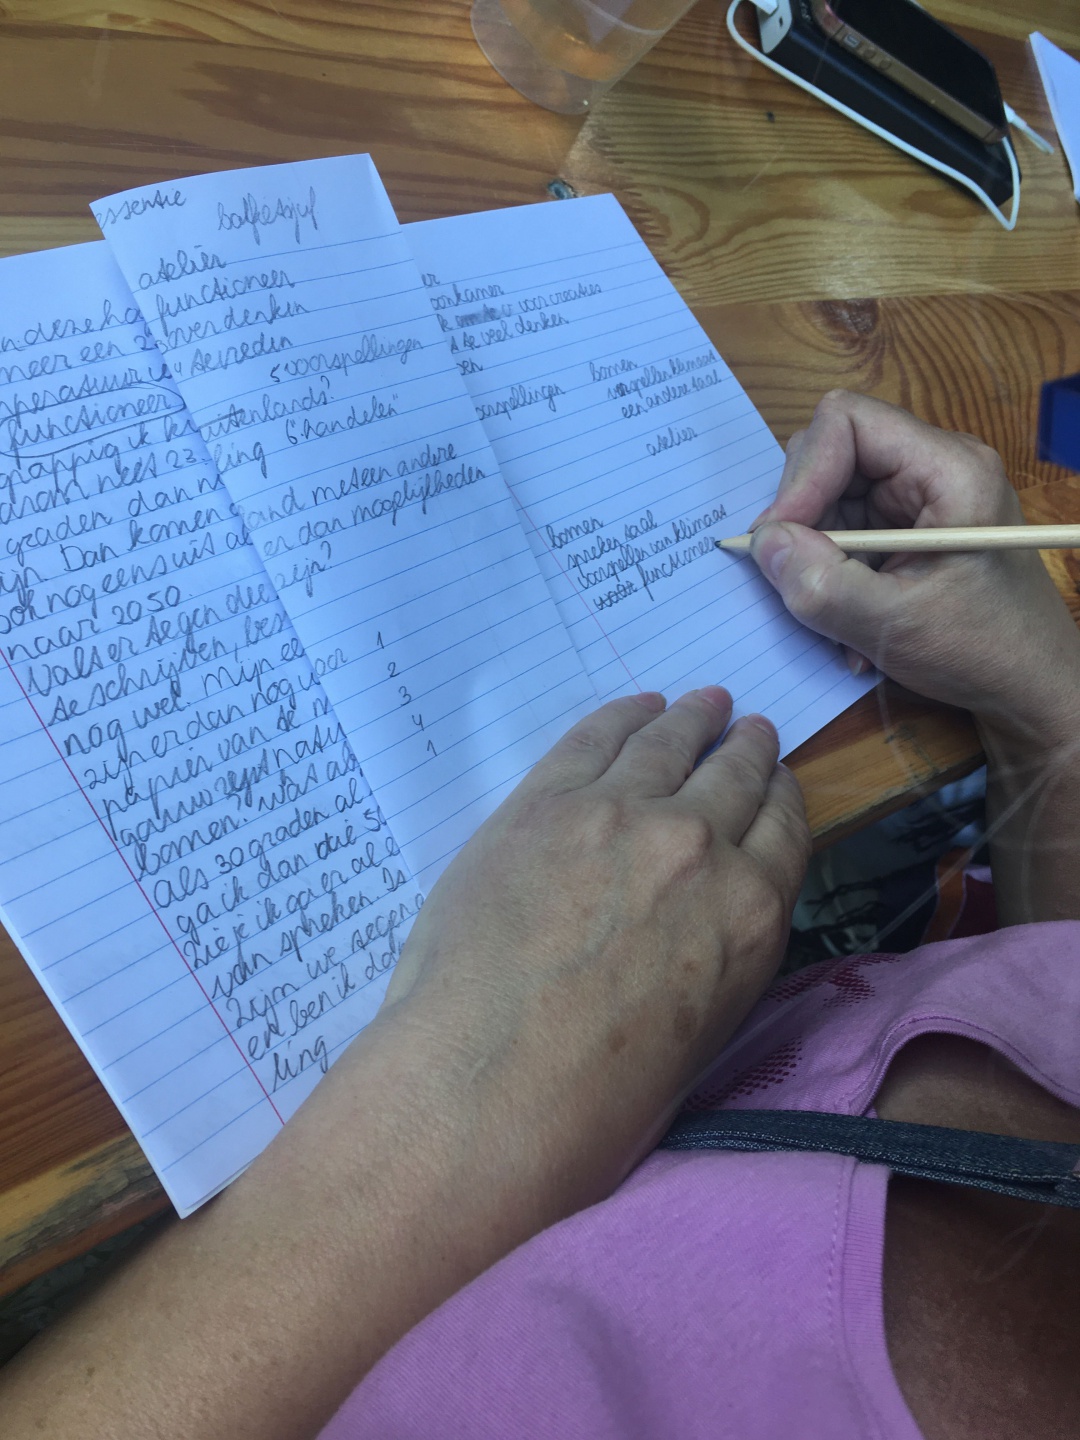 essentie
atelier
functioneer
overdenken
tevreden
5 voorspellingen
uitenlands?
ling 6 "handelen"
and met een andere
er dan mogelijkheden
zijn?
1
2
3
4
1
n deze ha
neer een 2
functioneer
grappig ik
23
graden dan
ijn. Dan komen
ook nog eens uit al
naar 2050.
Valt er tegen die
te schrijven, bes
nog wel. Mijn ee
zijn er dan nog voor
papier van te m
bomen? Wat al
als 30 graden al
ga ik dan die 50
zie je ik ga er al e
van spreken. Is
zijn we tegen
en ben ik da
ling
er
oonkamer
k er voor creaties
s te veel denken
en
oorspellingen
bomen
voorspellen klimaat
een andere taal
atelier
bomen
spreken taal
voorspellen van klimaat
functioneer